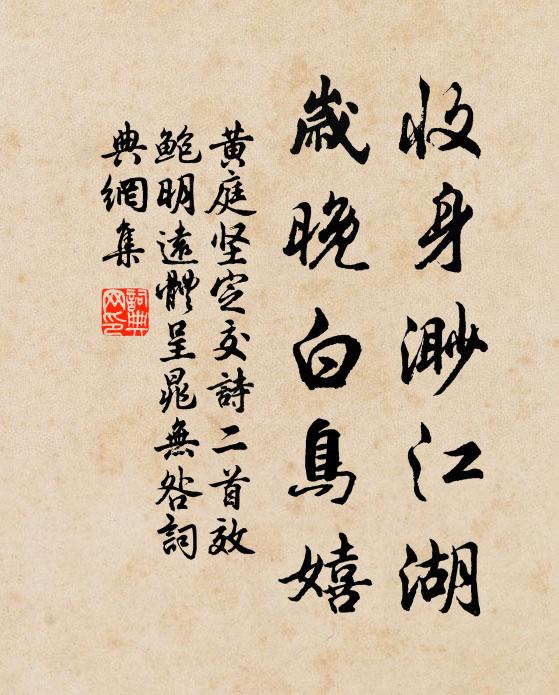 收身渺江湖
歲晚白鳥嬉
黃庭坚定交詩二首效
鮑明遠體呈晁無咎詞
典網集
詞典
网印